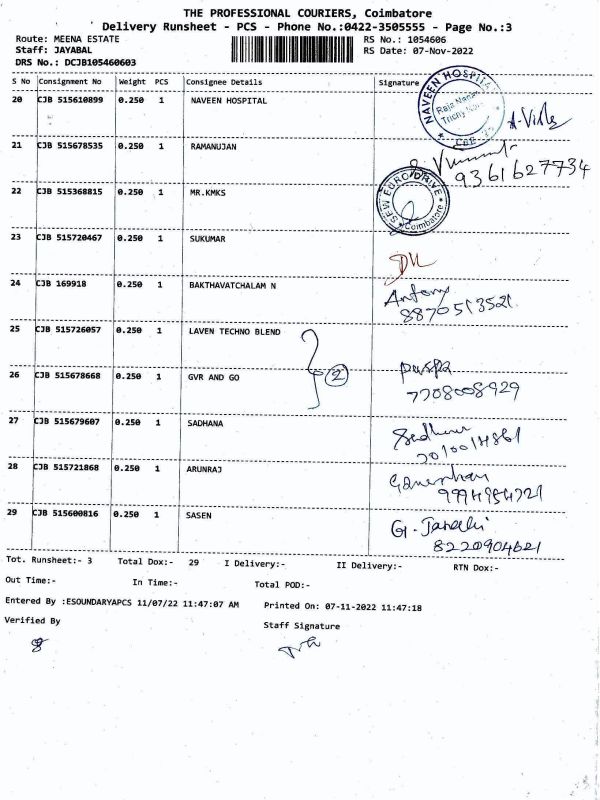 THE PROFESSIONAL COURIERS, Coimbatore
Delivery Runsheet - PCS - Phone No.:0422-3505555 - Page No.:3
Route: MEENA ESTATE RS No.: 1054606
Staff: JAYABAL RS Date: 07-Nov-2022
DRS No.: DCJB105460603
S No Consignment No Weight PCS Consignee Details Signature
20 CJB 515610899 0.250 1 NAVEEN HOSPITAL
NAVEEN HOSPITAL
21 CJB 515678535 0.250 1 RAMANUJAN
9361627734
22 CJB 515368815 0.250 1 MR.KMKS
SEW EURO DRIVE
Coimbatore
23 CJB 515720467 0.250 1 SUKUMAR
24 CJB 169918 0.250 1 BAKTHAVATCHALAM N
Antony
8870513521
25 CJB 515726057 0.250 1 LAVEN TECHNO BLEND
2
26 CJB 515678668 0.250 1 GVR AND GO
puspa
7708008929
27 CJB 515679607 0.250 1 SADHANA
28 CJB 515721868 0.250 1 ARUNRAJ
29 CJB 515600816 0.250 1 SASEN
8220904621
Tot. Runsheet:- 3 Total Dox:- 29 I Delivery:- II Delivery:- RTN Dox:-
Out Time:- In Time:- Total POD:-
Entered By :ESOUNDARYAPCS 11/07/22 11:47:07 AM Printed On: 07-11-2022 11:47:18
Verified By Staff Signature